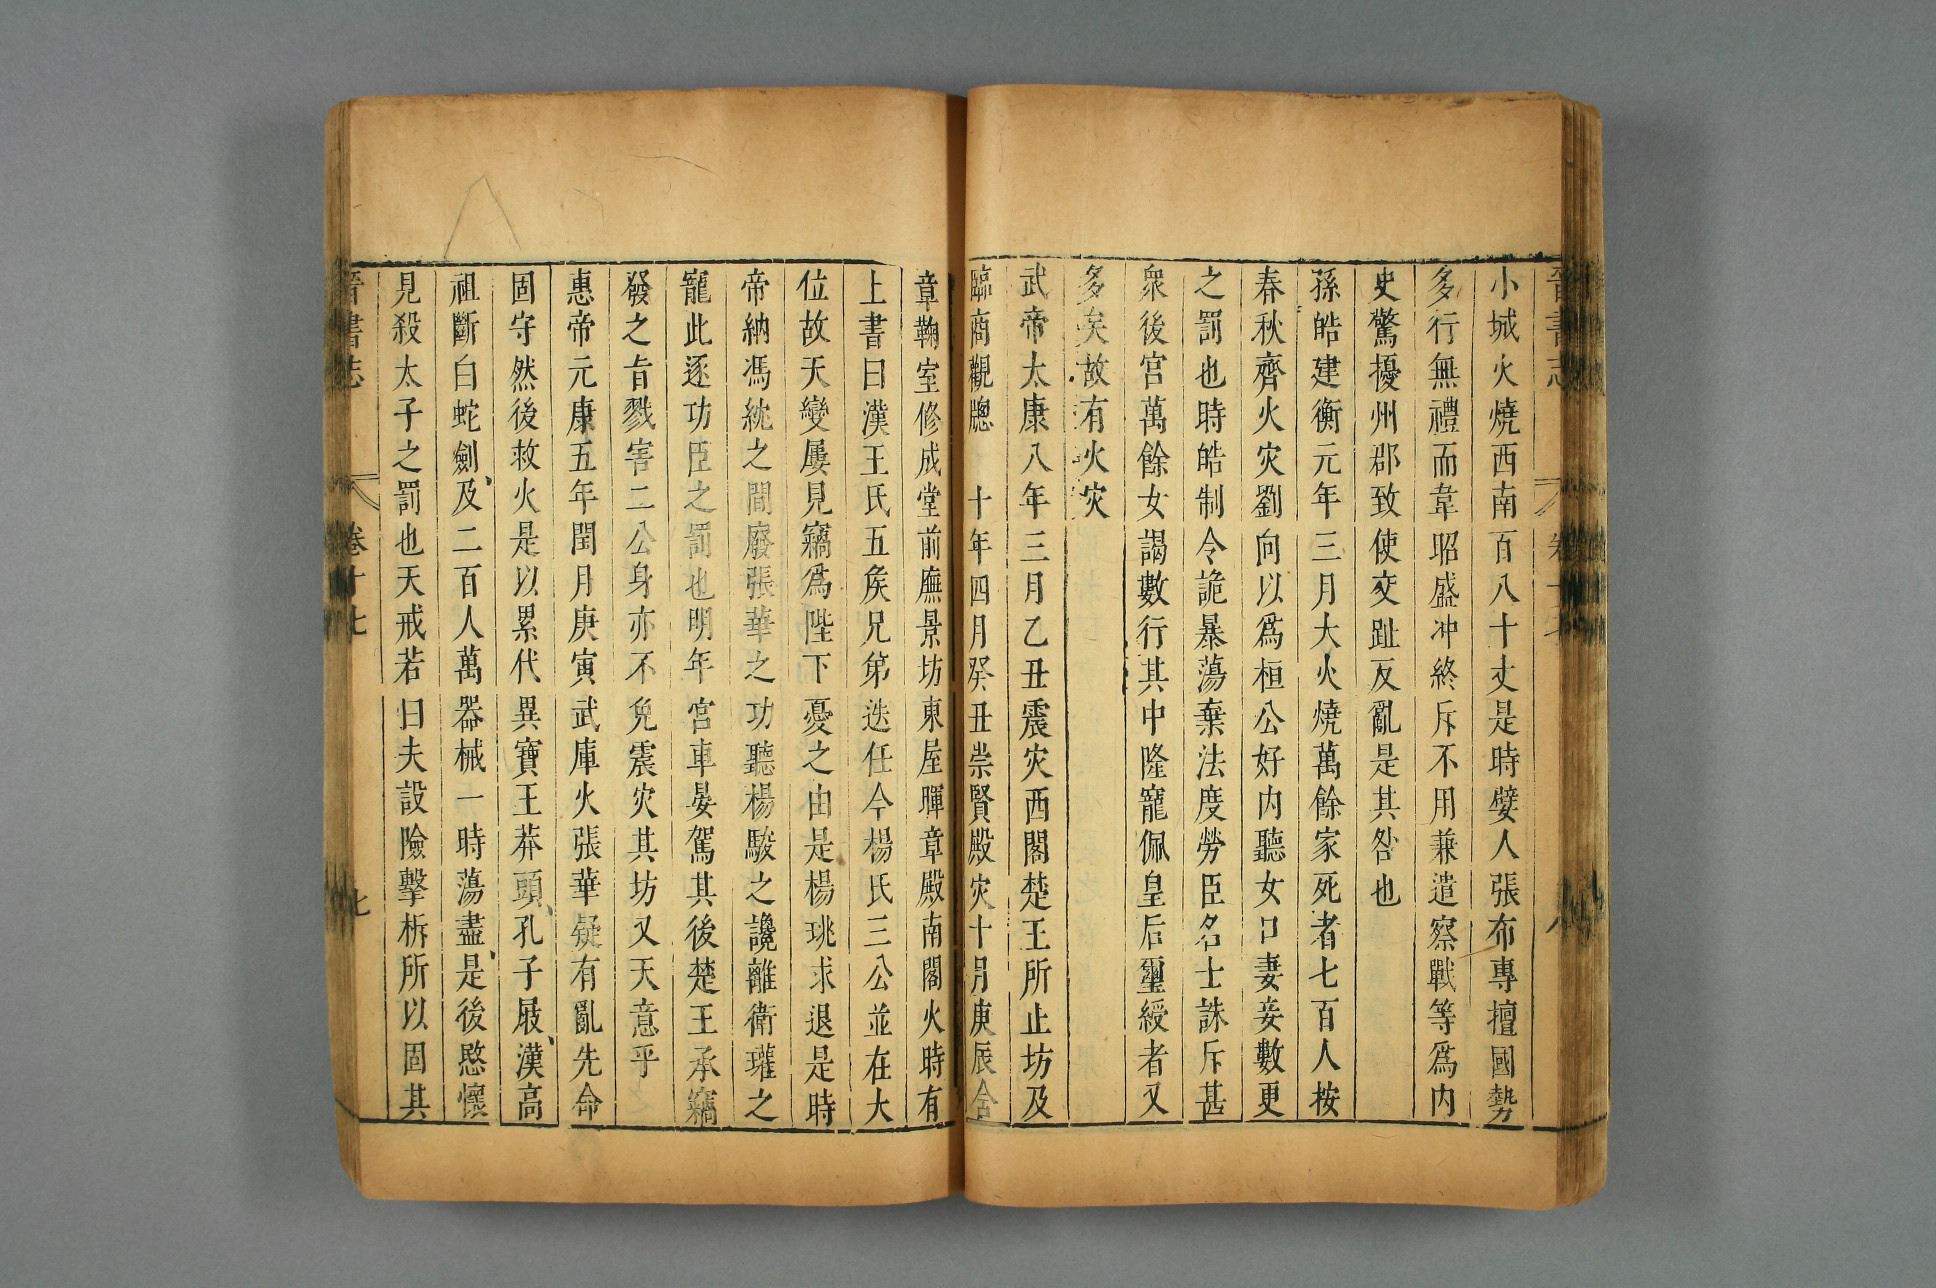 小城火燒西南百八十丈是時嬖人張布專擅國勢
多行無禮而韋昭盛沖終斥不用兼遣察戰等爲內
史驚擾州郡致使交趾反亂是其咎也
孫皓建衡元年三月大火燒萬餘家死者七百人按
春秋齊火灾劉向以爲桓公好內聽女口妻妾數更
之罰也時皓制令詭暴蕩棄法度勞臣名士誅斥甚
衆後宮萬餘女謁數行其中隆寵佩皇后璽綬者又
多矣故有火灾
武帝太康八年三月乙丑震灾西閣楚王所止坊及
臨商觀牕 十年四月癸丑崇賢殿灾十月庚辰含
章鞠室修成堂前廡景坊東屋暉章殿南閣火時有
上書曰漢王氏五侯兄弟迭任今楊氏三公並在大
位故天變屢見竊爲陛下憂之由是楊珧求退是時
帝納馮紞之間廢張華之功聽楊駿之讒離衛瓘之
寵此逐功臣之罰也明年宮車晏駕其後楚王承竊
發之旨戮害二公身亦不免震灾其坊又天意乎
惠帝元康五年閏月庚寅武庫火張華疑有亂先命
固守然後救火是以累代異寶王莽頭孔子屐漢高
祖斷白蛇劍及二百人萬器械一時蕩盡是後愍懷
見殺太子之罰也天戒若曰夫設險擊柝所以固其
晉書志 卷十七 七